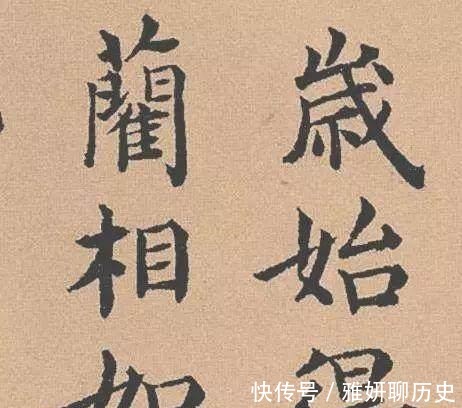 嵗始
藺相如
快传号 / 雅妍聊历史